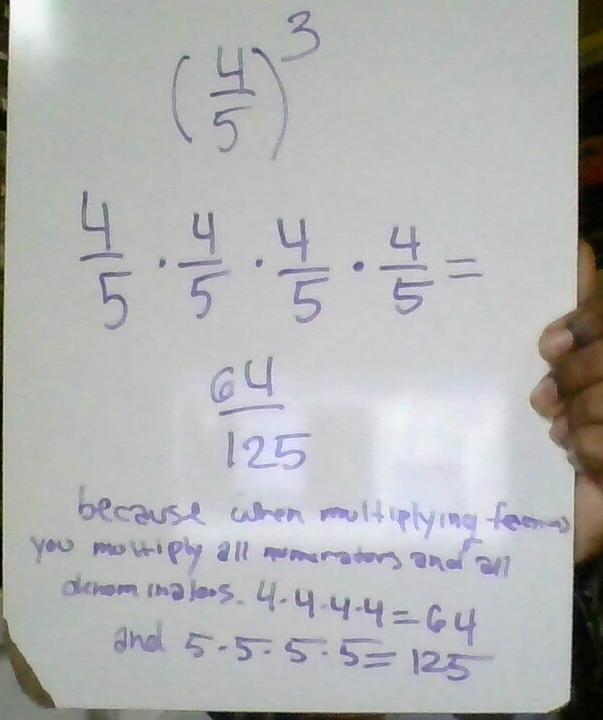 (4/5)³
4/5 · 4/5 · 4/5 · 4/5 =
64/125
because when multiplying
you multiply all numerators and all
denominators. 4·4·4·4=64
and 5·5·5·5=125